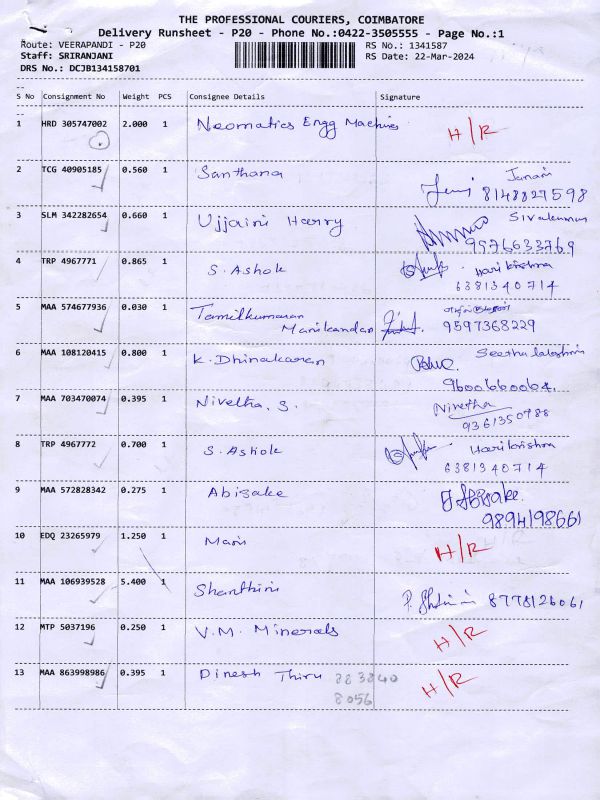 THE PROFESSIONAL COURIERS, COIMBATORE
Delivery Runsheet - P20 - Phone No.:0422-3505555 - Page No.:1
Route: VEERAPANDI - P20 RS No.: 1341587
Staff: SRIRANJANI RS Date: 22-Mar-2024
DRS No.: DCJB134158701
S No Consignment No Weight PCS Consignee Details Signature
1 HRD 305747002 2.000 1 Neomatics Engg Machines H/R
2 TCG 40905185 0.560 1 Santhana Janani
8148827598
3 SLM 342282654 0.660 1 Ujjaini Harry Sivakumar
9976633769
4 TRP 4967771 0.865 1 S. Ashok Harikrishna
6381340714
5 MAA 574677936 0.030 1 Tamilkumaran
Manikandan 9597368229
6 MAA 108120415 0.800 1 K. Dhinakaran Seetha lakshmi
9600660064
7 MAA 703470074 0.395 1 Nivetha. S. Nivetha
9361350788
8 TRP 4967772 0.700 1 S. Ashok Harikrishna
6381340714
9 MAA 572828342 0.275 1 Abisake
9894198661
10 EDQ 23265979 1.250 1 Mani H/R
11 MAA 106939528 5.400 1 Shanthini 8778126061
12 MTP 5037196 0.250 1 V.M. Minerals H/R
13 MAA 863998986 0.395 1 Dinesh Thiru 883840 H/R
8056